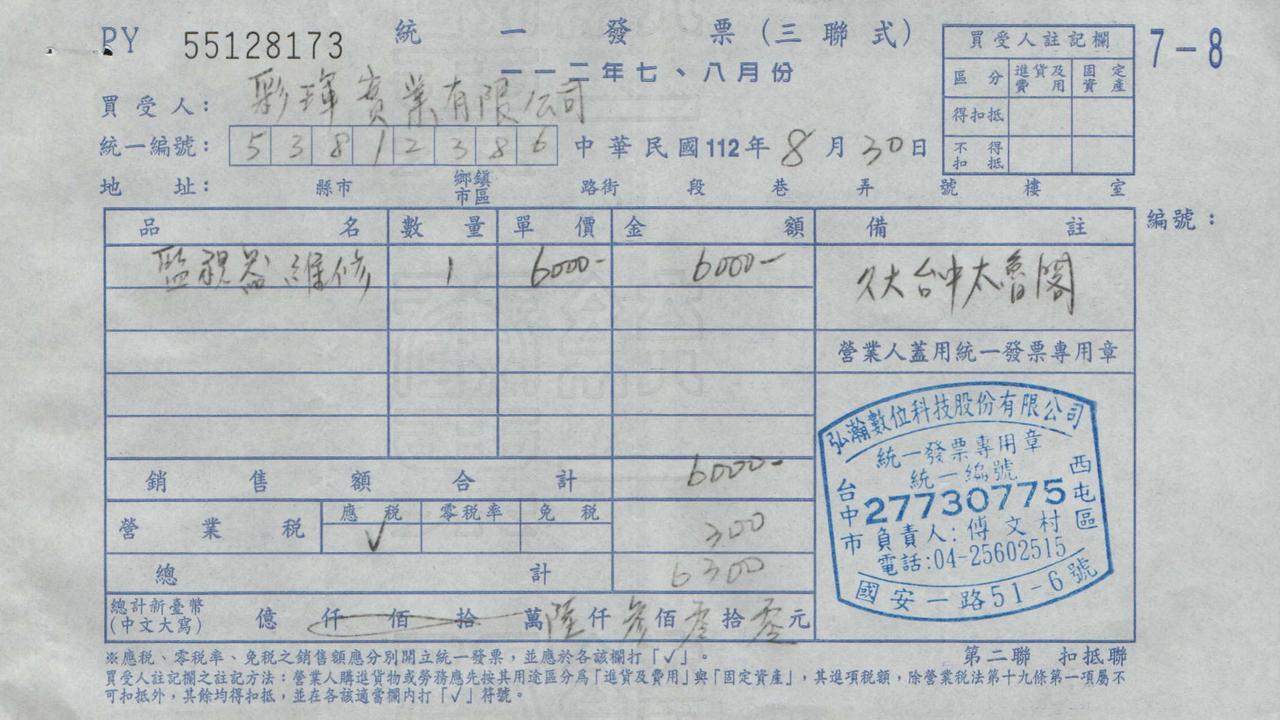 PY 55128173 統一發票(三聯式)
一一二年七、八月份
7-8
買受人註記欄
區分 進貨及費用 固定資產
得扣抵
不得扣抵
買受人: 彩琿實業有限公司
統一編號: 53812386 中華民國112年8月30日
地址: 縣市 鄉鎮市區 路街 段 巷 弄 號 樓 室
品名 數量 單價 金額 備註 編號:
監視器維修 1 6000- 6000- 久大台中太魯閣
營業人蓋用統一發票專用章
銷售額合計 6000-
營業稅 應稅 ✓ 零稅率 免稅 300
總計 6300
總計新臺幣(中文大寫) 億仟佰拾萬陸仟參佰零拾零元
弘瀚數位科技股份有限公司
統一發票專用章
統一編號
27730775
負責人:傅文村
電話:04-25602515
台中市西屯區
國安一路51-6號
※應稅、零稅率、免稅之銷售額應分別開立統一發票,並應於各該欄打「✓」。
第二聯 扣抵聯
買受人註記欄之註記方法:營業人購進貨物或勞務應先按其用途區分為「進貨及費用」與「固定資產」,其進項稅額,除營業稅法第十九條第一項屬不
可扣抵外,其餘均得扣抵,並在各該適當欄內打「✓」符號。